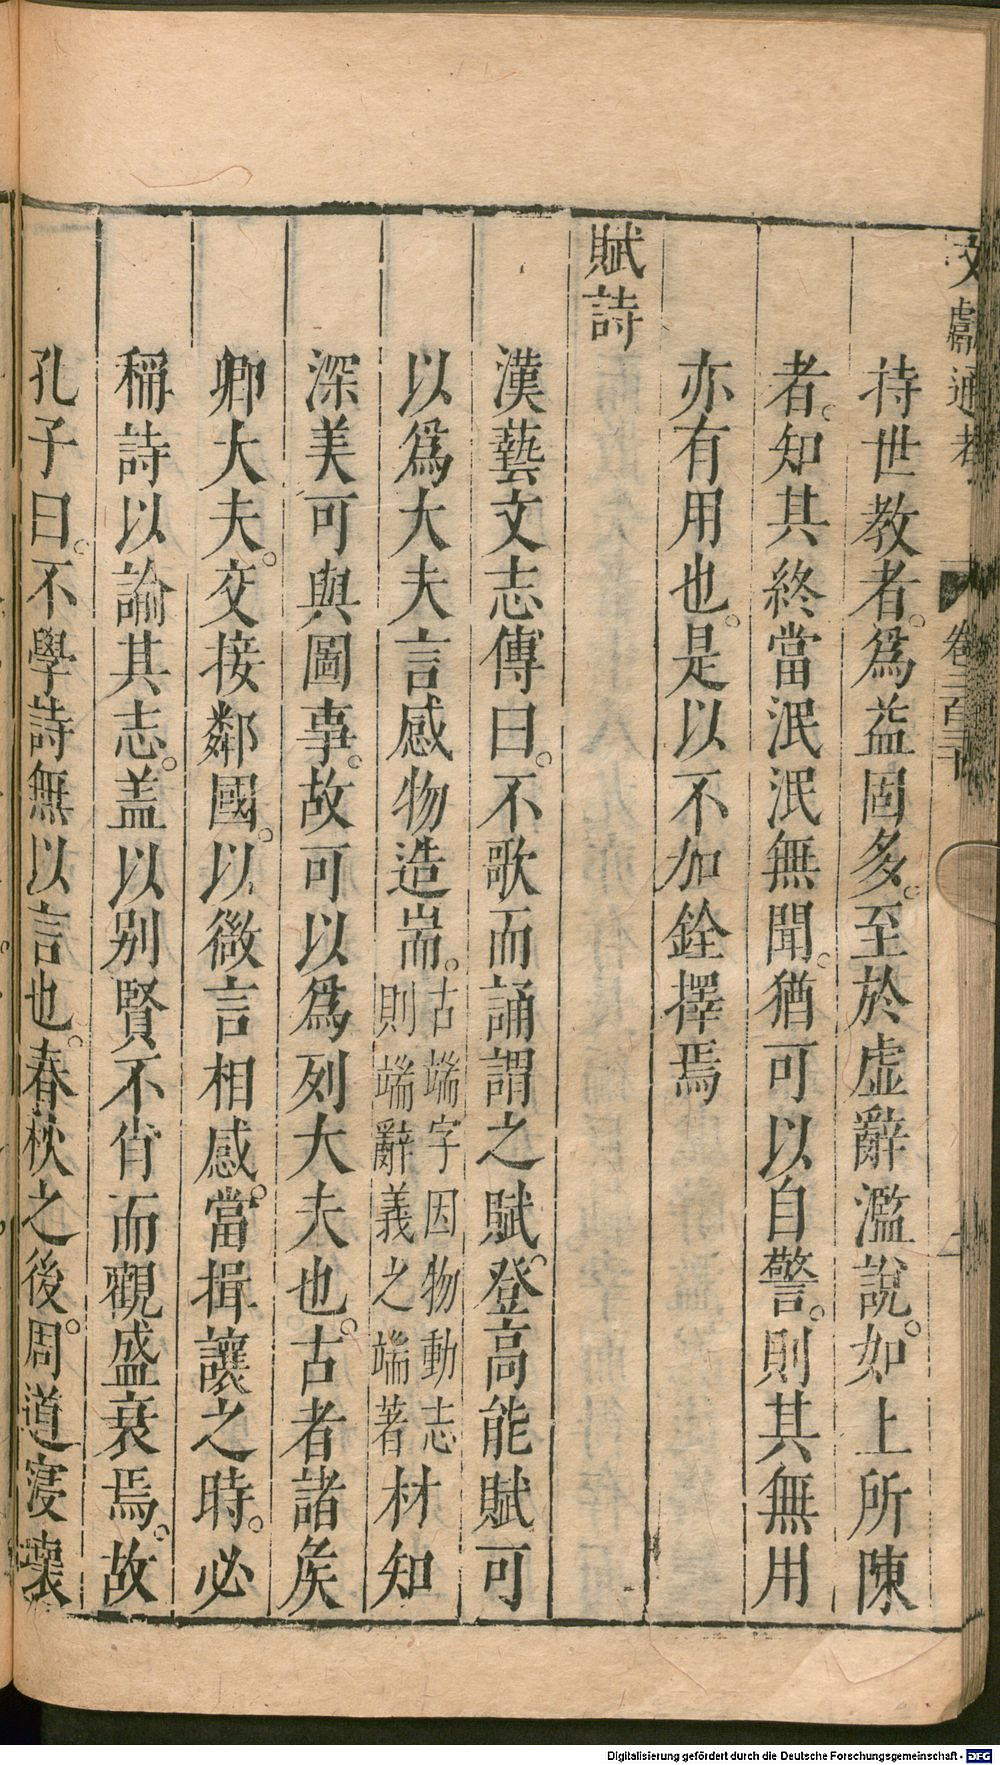 文獻通考 卷二百三十
持世教者。爲益固多。至於虛辭濫說。如上所陳
者。知其終當泯泯無聞。猶可以自警。則其無用
亦有用也。是以不加銓擇焉
賦詩
漢藝文志傳曰。不歌而誦謂之賦。登高能賦可
以爲大夫言感物造耑。古端字因物動志則端辭義之端著材知
深美可與圖事。故可以爲列大夫也。古者諸矦
卿大夫。交接鄰國。以微言相感。當揖讓之時。必
稱詩以諭其志。盖以別賢不肖而觀盛衰焉。故
孔子曰。不學詩無以言也。春秋之後。周道寖壞
Digitalisierung gefördert durch die Deutsche Forschungsgemeinschaft - DFG